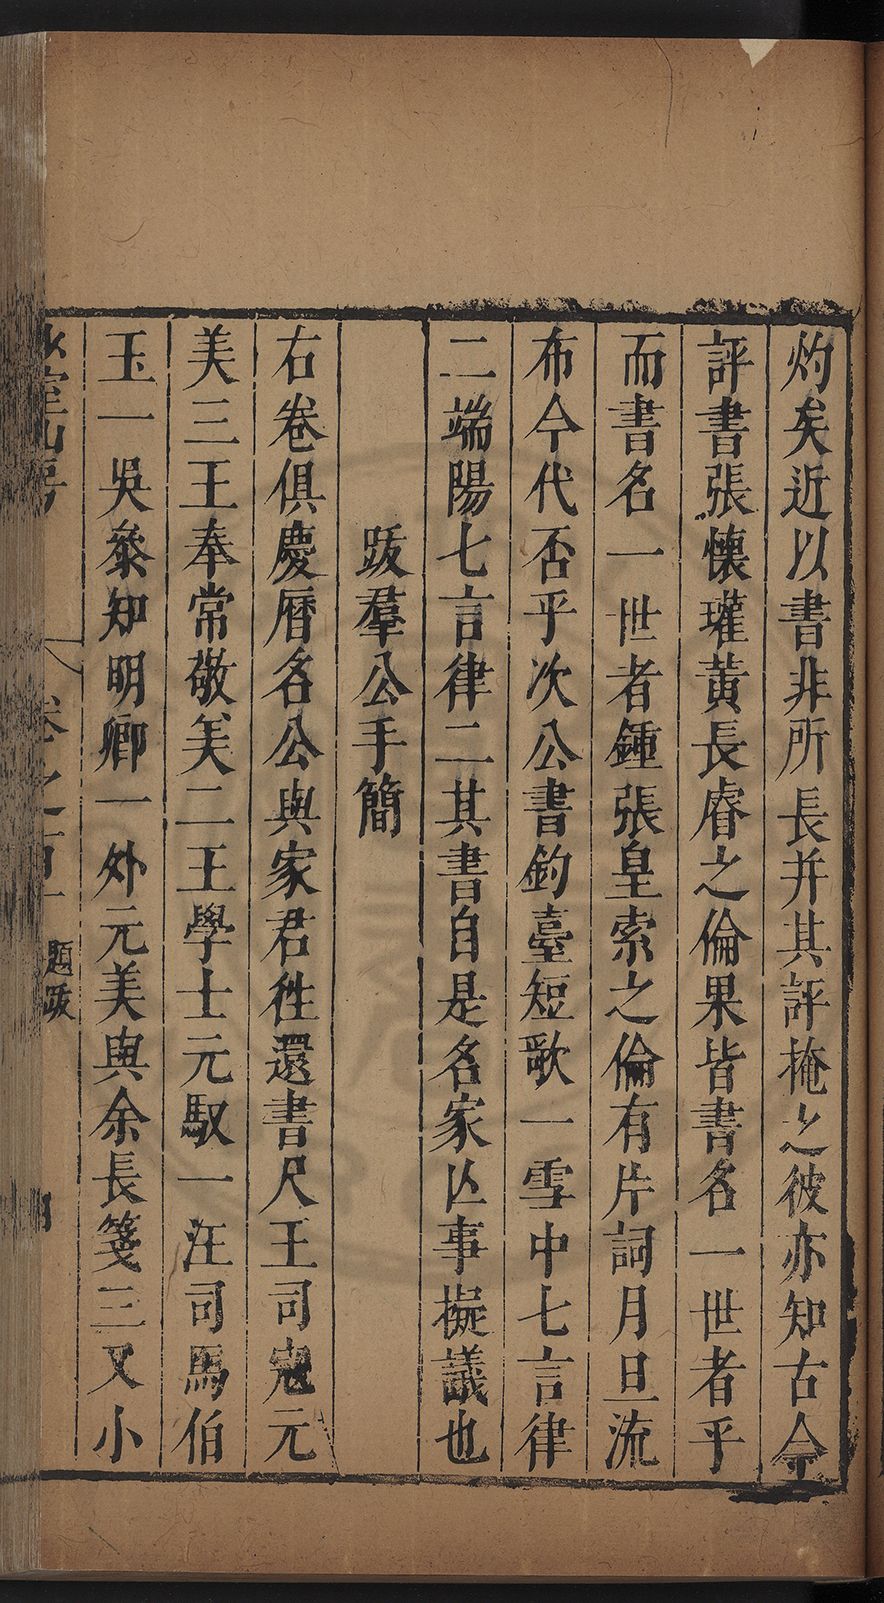 灼矣近以書非所長并其評掩之彼亦知古今
評書張懷瓘黃長睿之倫果皆書名一世者乎
而書名一世者鍾張皇索之倫有片詞月旦流
布今代否乎次公書鈞臺短歌一雪中七言律
二端陽七言律二其書自是名家仄事擬議也
跋羣公手簡
右卷俱慶曆名公與家君徃還書尺王司寇元
美三王奉常敬美二王學士元馭一汪司馬伯
玉一吳叅知明卿一外元美與余長箋三又小
卷之百十
題跋